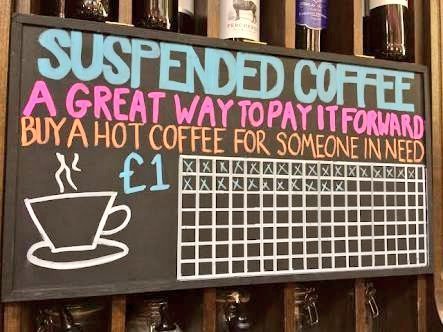 SUSPENDED COFFEE
A GREAT WAY TO PAY IT FORWARD
BUY A HOT COFFEE FOR SOMEONE IN NEED
£1